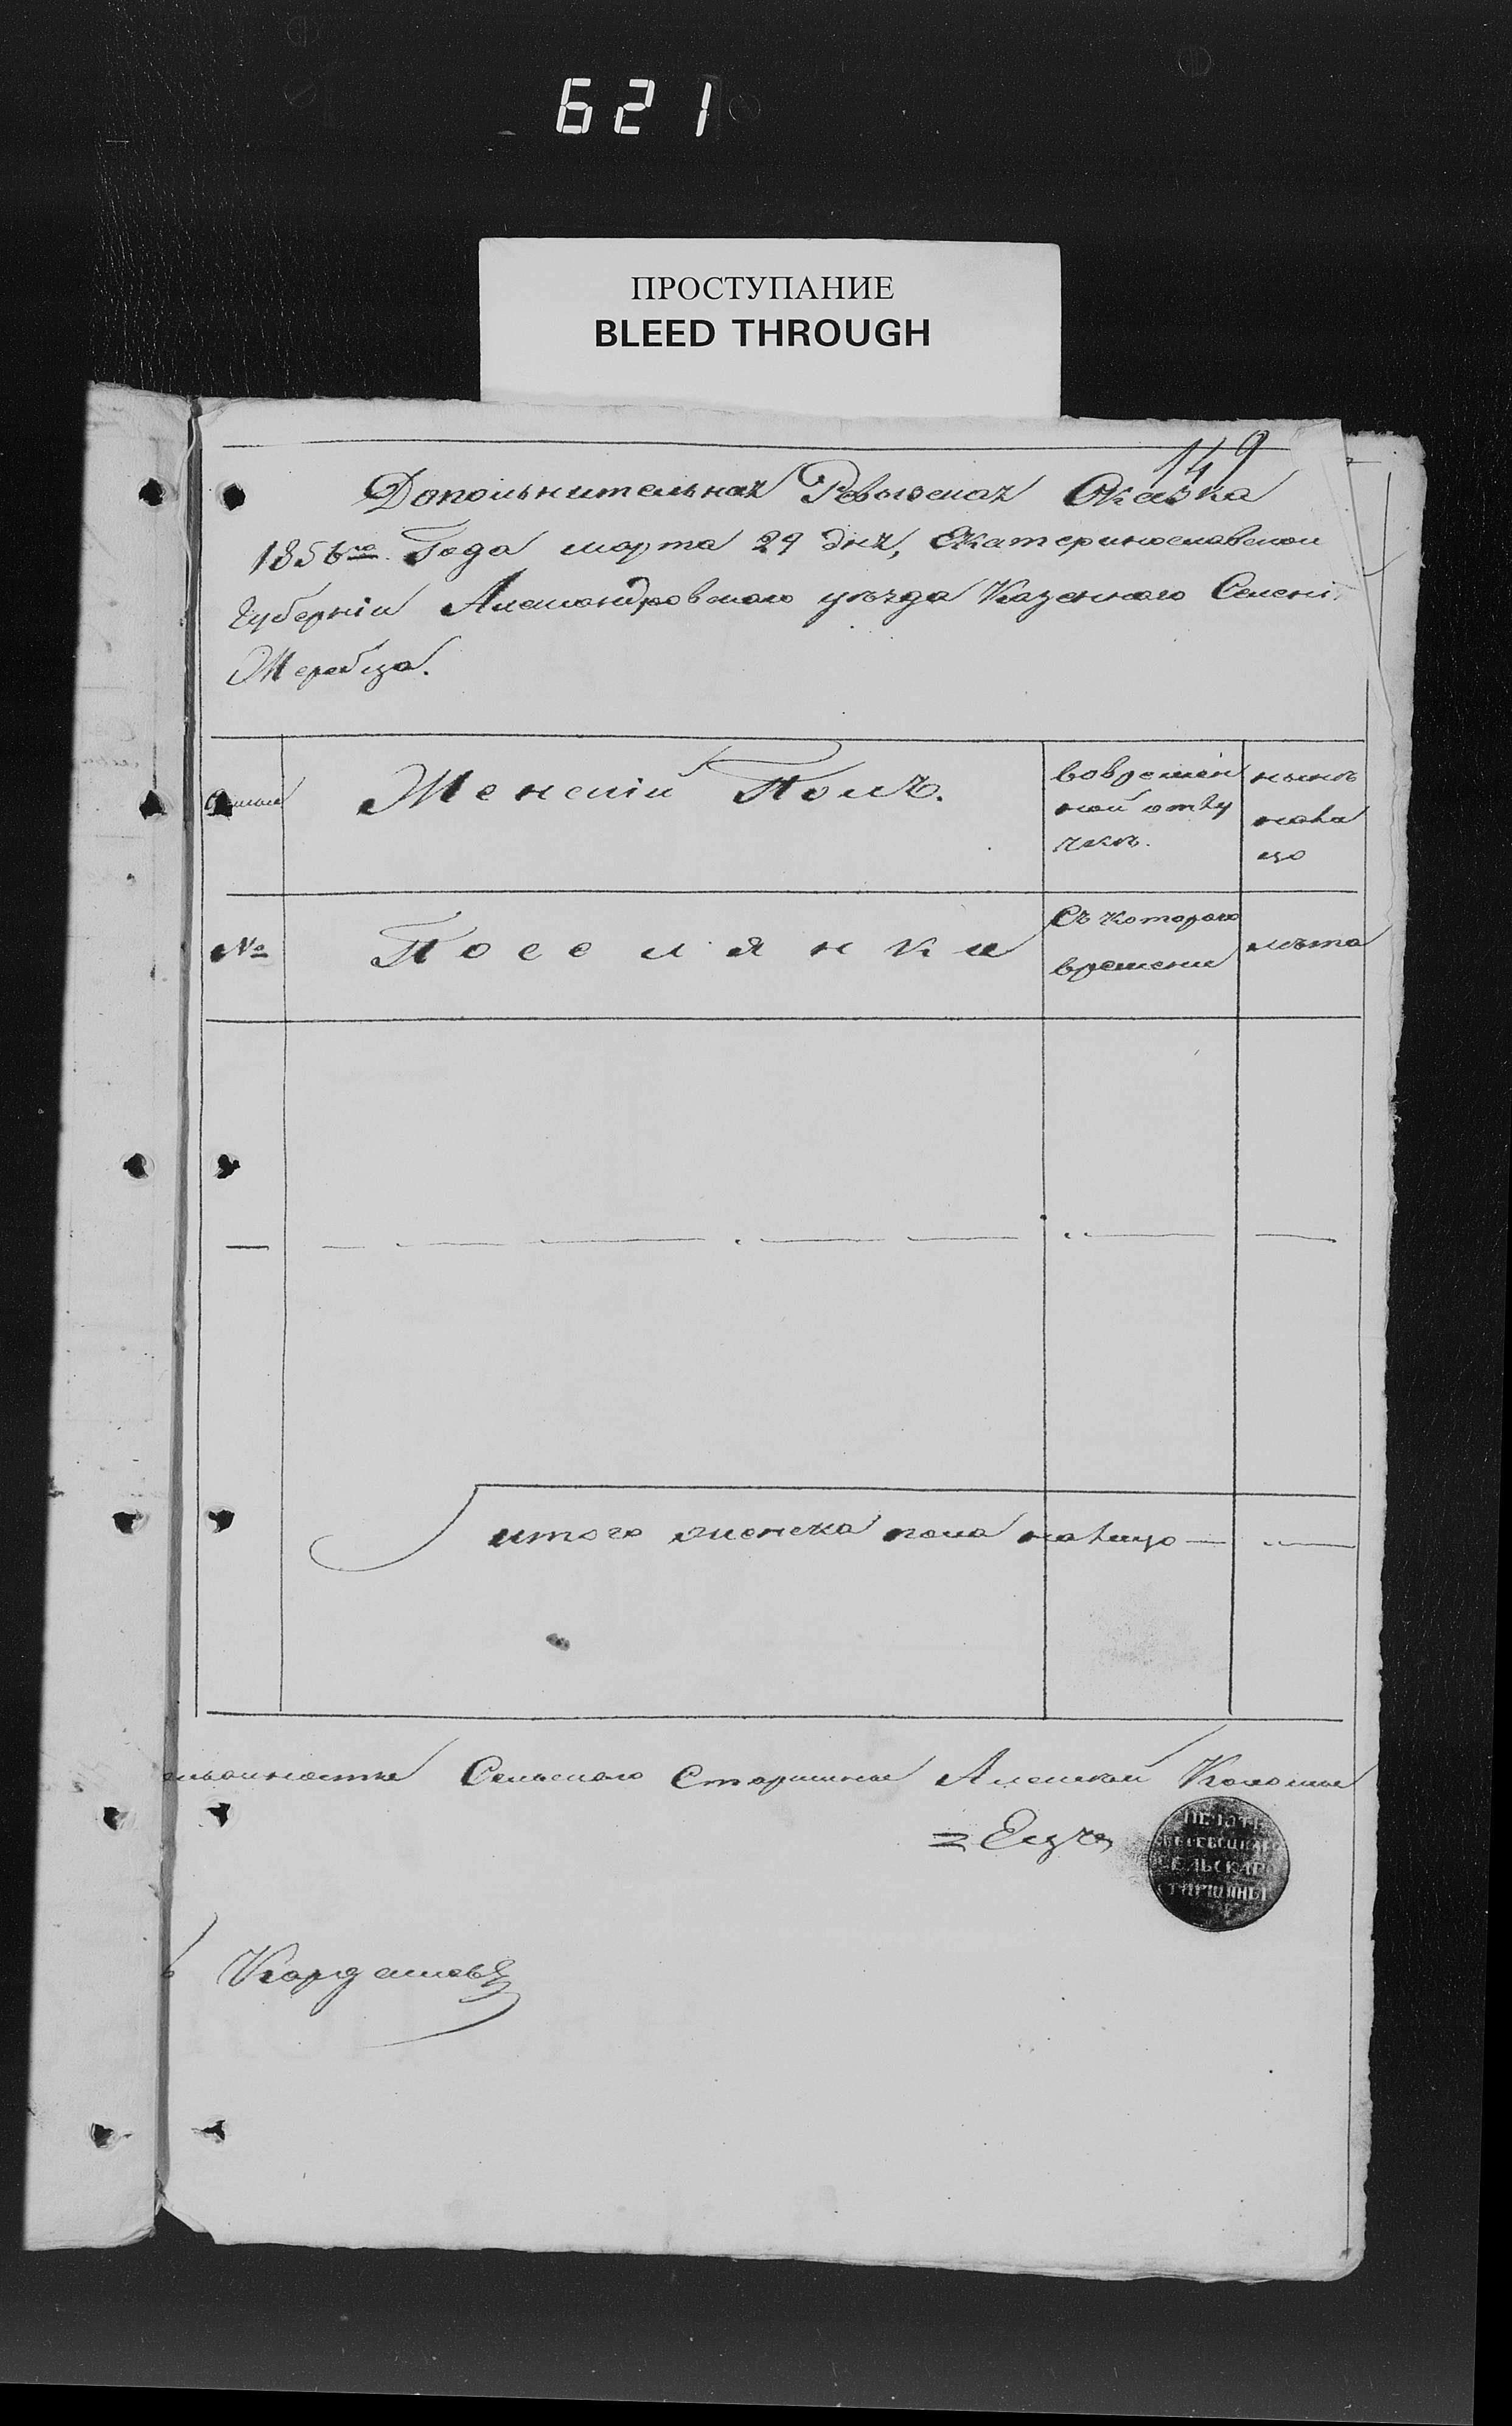 621
ПРОСТУПАНИЕ
BLEED THROUGH
149
Дополнительная Ревизская Сказка
1856го Года марта 29 дня, Екатеринославской
Губерніи Александровского уѣзда Казенного Селені
Жеребца.
Женскій Полъ.
вовремен
ной отлу
чкѣ.
нынѣ
нали
цо
№
Поселянки
Съ которого
времени
лѣта
итого женска пола налицо
Сельского Старшины Алексей Коломы
= Ецъ
ПЕЧАТЬ
СЕЛЬСКАГО
СТАРШИНЫ
Кордашевъ